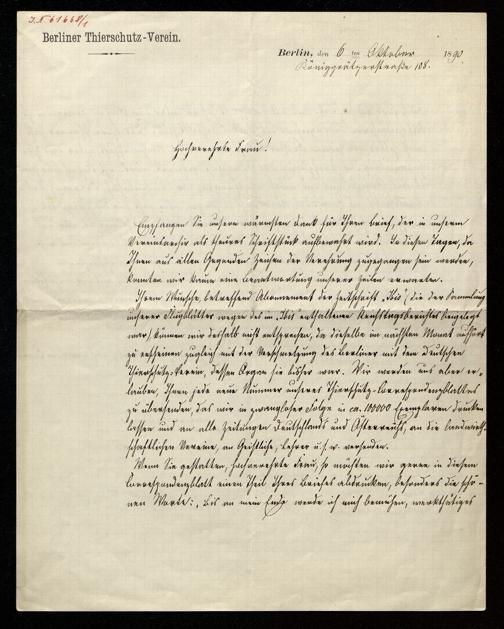 J.N. 61668/1
Berliner Thierschutz-Verein.
Berlin, den 6 ten Oktober 1890
Königgrätzerstraße 108.
Hochverehrte Frau!
Empfangen Sie unsern wärmsten Dank für Ihren Brief, der in unserm
Vereinsarchiv als theures Schriftstück aufbewahrt wird. In diesen Tagen, da
Ihnen aus allen Gegenden Zeichen der Verehrung zugegangen sein werden,
konnten wir kaum eine Beantwortung unserer Zeilen erwarten.
Ihrem Wunsche, betreffend Abonnement der Zeitschrift "Ibis" (die der Sammlung
unserer Flugblätter wegen des im "Ibis" enthaltenen Rechtstagsberichtes beigelegt
war) können wir deshalb nicht entsprechen, da dieselbe im nächsten Monat aufhört
zu erscheinen zugleich mit der Verschmelzung des Berliner mit dem Deutschen
Thierschutz-Verein, dessen Organ sie bisher war. Wir werden uns aber er-
lauben, Ihnen jede neue Nummer unseres Thierschutz-Correspondenzblattes
zu übersenden, das wir in zwangloser Folge in ca. 100000 Exemplaren drucken
lassen und an alle Zeitungen Deutschlands und Österreichs, an die landwirth-
schaftlichen Vereine, an Geistliche, Lehrer u.s.w. versenden.
Wenn Sie gestatten, hochverehrte Frau, so möchten wir gerne in diesem
Correspondenzblatt einen Theil Ihres Briefes abdrucken, besonders die schö-
nen Worte: "Bis an mein Ende werde ich mich bemühen, werkthätiges